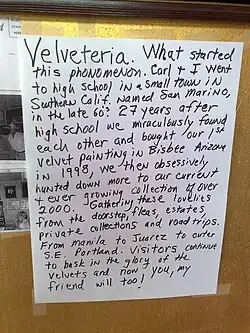 Velveteria. What started
this phonomenon. Carl & I went
to high school in a small town in
Southern Calif. named San Marino,
in the late 60s 27 years after
high school we miraculously found
each other and bought our 1st
velvet painting in Bisbee Arizona
in 1998, we then obsessively
hunted down more to our current
& ever growing collection of over
2000. Gathering these lovelies
from the doorstep, fleas, estates,
private collections and road trips.
From manila to Juarez to outer
S.E. Portland. Visitors continue
to bask in the glory of the
velvets and now you, my
friend will too!